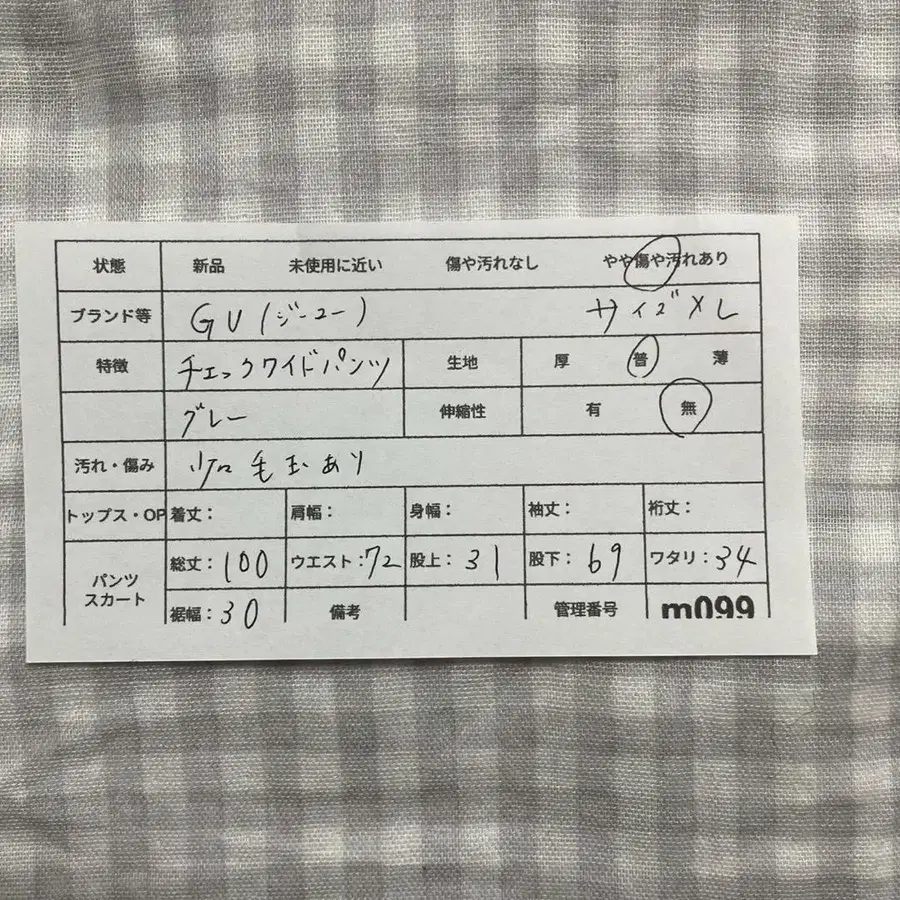 状態 新品 未使用に近い 傷や汚れなし やや傷や汚れあり
ブランド等 GU(ジーユー) サイズXL
特徴 チェックワイドパンツ 生地 厚 普 薄
グレー 伸縮性 有 無
汚れ・傷み 少々毛玉あり
トップス・OP 着丈: 肩幅: 身幅: 袖丈: 裄丈:
パンツ スカート 総丈:100 ウエスト:72 股上:31 股下:69 ワタリ:34
裾幅:30 備考 管理番号 m099